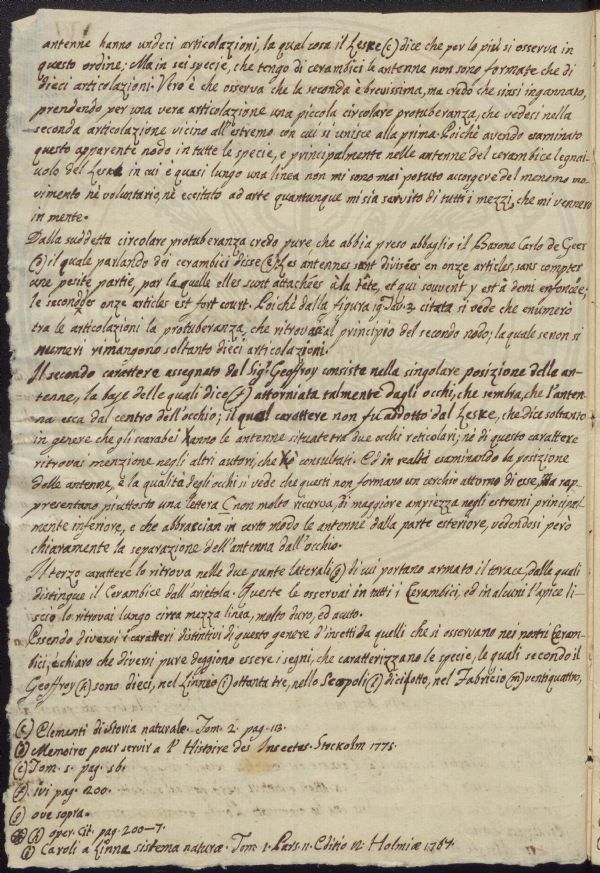 antenne hanno undeci articolazioni, la qual cosa il Leske (c) dice che per lo più si osserva in
questo ordine; Ma in sei specie, che tengo di cerambici le antenne non sono formate che di
dieci articolazioni. Vero è che osserva che la seconda è brevissima, ma credo che siasi ingannato,
prendendo per una vera articolazione una piccola circolare protuberanza, che vedesi nella
seconda articolazione vicino all'estremo con cui si unisce alla prima. Poichè avendo esaminato
questo apparente nodo in tutte le specie, e principalmente nelle antenne del cerambice legnai-
uolo del Leske in cui è quasi lungo una linea non mi sono mai potuto accorgere del menomo mo-
vimento nè voluntario, nè eccitato ad arte quantunque mi sia servito di tutti i mezzi, che mi vennero
in mente.
Dalla suddetta circolare protuberanza credo pure che abbia preso abbaglio il Barone Carlo de Geer
(d) il quale parlando dei cerambici disse (e) Les antennes sont divisées en onze articles, sans compter
une petite partie, par la quelle elles sont attachées à la tête, et qui souvent y est à demi enfoncée;
le second des onze articles est fort court. Poichè dalla figura 19 Tav. 3. citata si vede che enumerò
tra le articolazioni la protuberanza, che ritrovasi al principio del secondo nodo; la quale se non si
numeri rimangono soltanto dieci articolazioni.
Il secondo carattere assegnato dal Sigr. Geoffroy consiste nella singolare posizione delle an-
tenne, la base delle quali dice (f) attorniata talmente dagli occhi, che sembra, che l'anten-
na esca dal centro dell'occhio; il qual carattere non fu addotto dal Leske, che dice soltanto
in genere che gli scarabei hanno le antenne situate tra due occhi reticolari; nè di questo carattere
ritrovai menzione negli altri autori, che hò consultati. Ed in realtà esaminando la posizione
delle antenne, e la qualità degli occhi si vede che questi non formano un cerchio attorno di esse, Ma rap-
presentano piuttosto una lettera C non molto ricurva, di maggiore ampiezza negli estremi principal-
mente inferiore, e che abbraccian in certo modo le antenne dalla parte esteriore, vedendosi però
chiaramente la separazione dell'antenna dall'occhio.
Il terzo carattere lo ritrova nelle due punte laterali (g) di cui portano armato il torace, dalle quali
distingue il Cerambice dall'arietola. Queste le osservai in tutti i Cerambici, ed in alcuni l'apice li-
scio lo ritrovai lungo circa mezza linea, molto duro, ed acuto.
Essendo diversi i caratteri distintivi di questo genere d'insetti da quelli che si osservano nei nostri Ceram-
bici, è chiaro che diversi pure deggiono essere i segni, che caratterizzano le specie, le quali secondo il
Geoffroy (h) sono dieci, nel Linneo (i) ottanta tre, nello Scopoli (l) diciotto, nel Fabricio (m) ventiquattro,
(c) Elementi di Storia naturale. Tom. 2. pag. 113.
(d) Memoires pour servir a l'Histoire des Insectes. Stockolm 1775.
(e) Tom. 5. pag. 56.
(f) ivi pag. 200.
(g) ove sopra.
(h) oper. cit. pag. 200-7.
(i) Caroli a Linnè sistema naturæ. Tom 1. Pars. II. Editio 12. Holmiæ 1767.